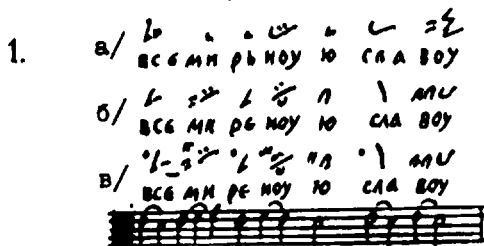 1. а/ ВСЕ МИ РЬ НОУ Ю СЛА ВОУ
б/ ВСЕ МИ РЕ НОУ Ю СЛА ВОУ
в/ ВСЕ МИ РЕ НОУ Ю СЛА ВОУ